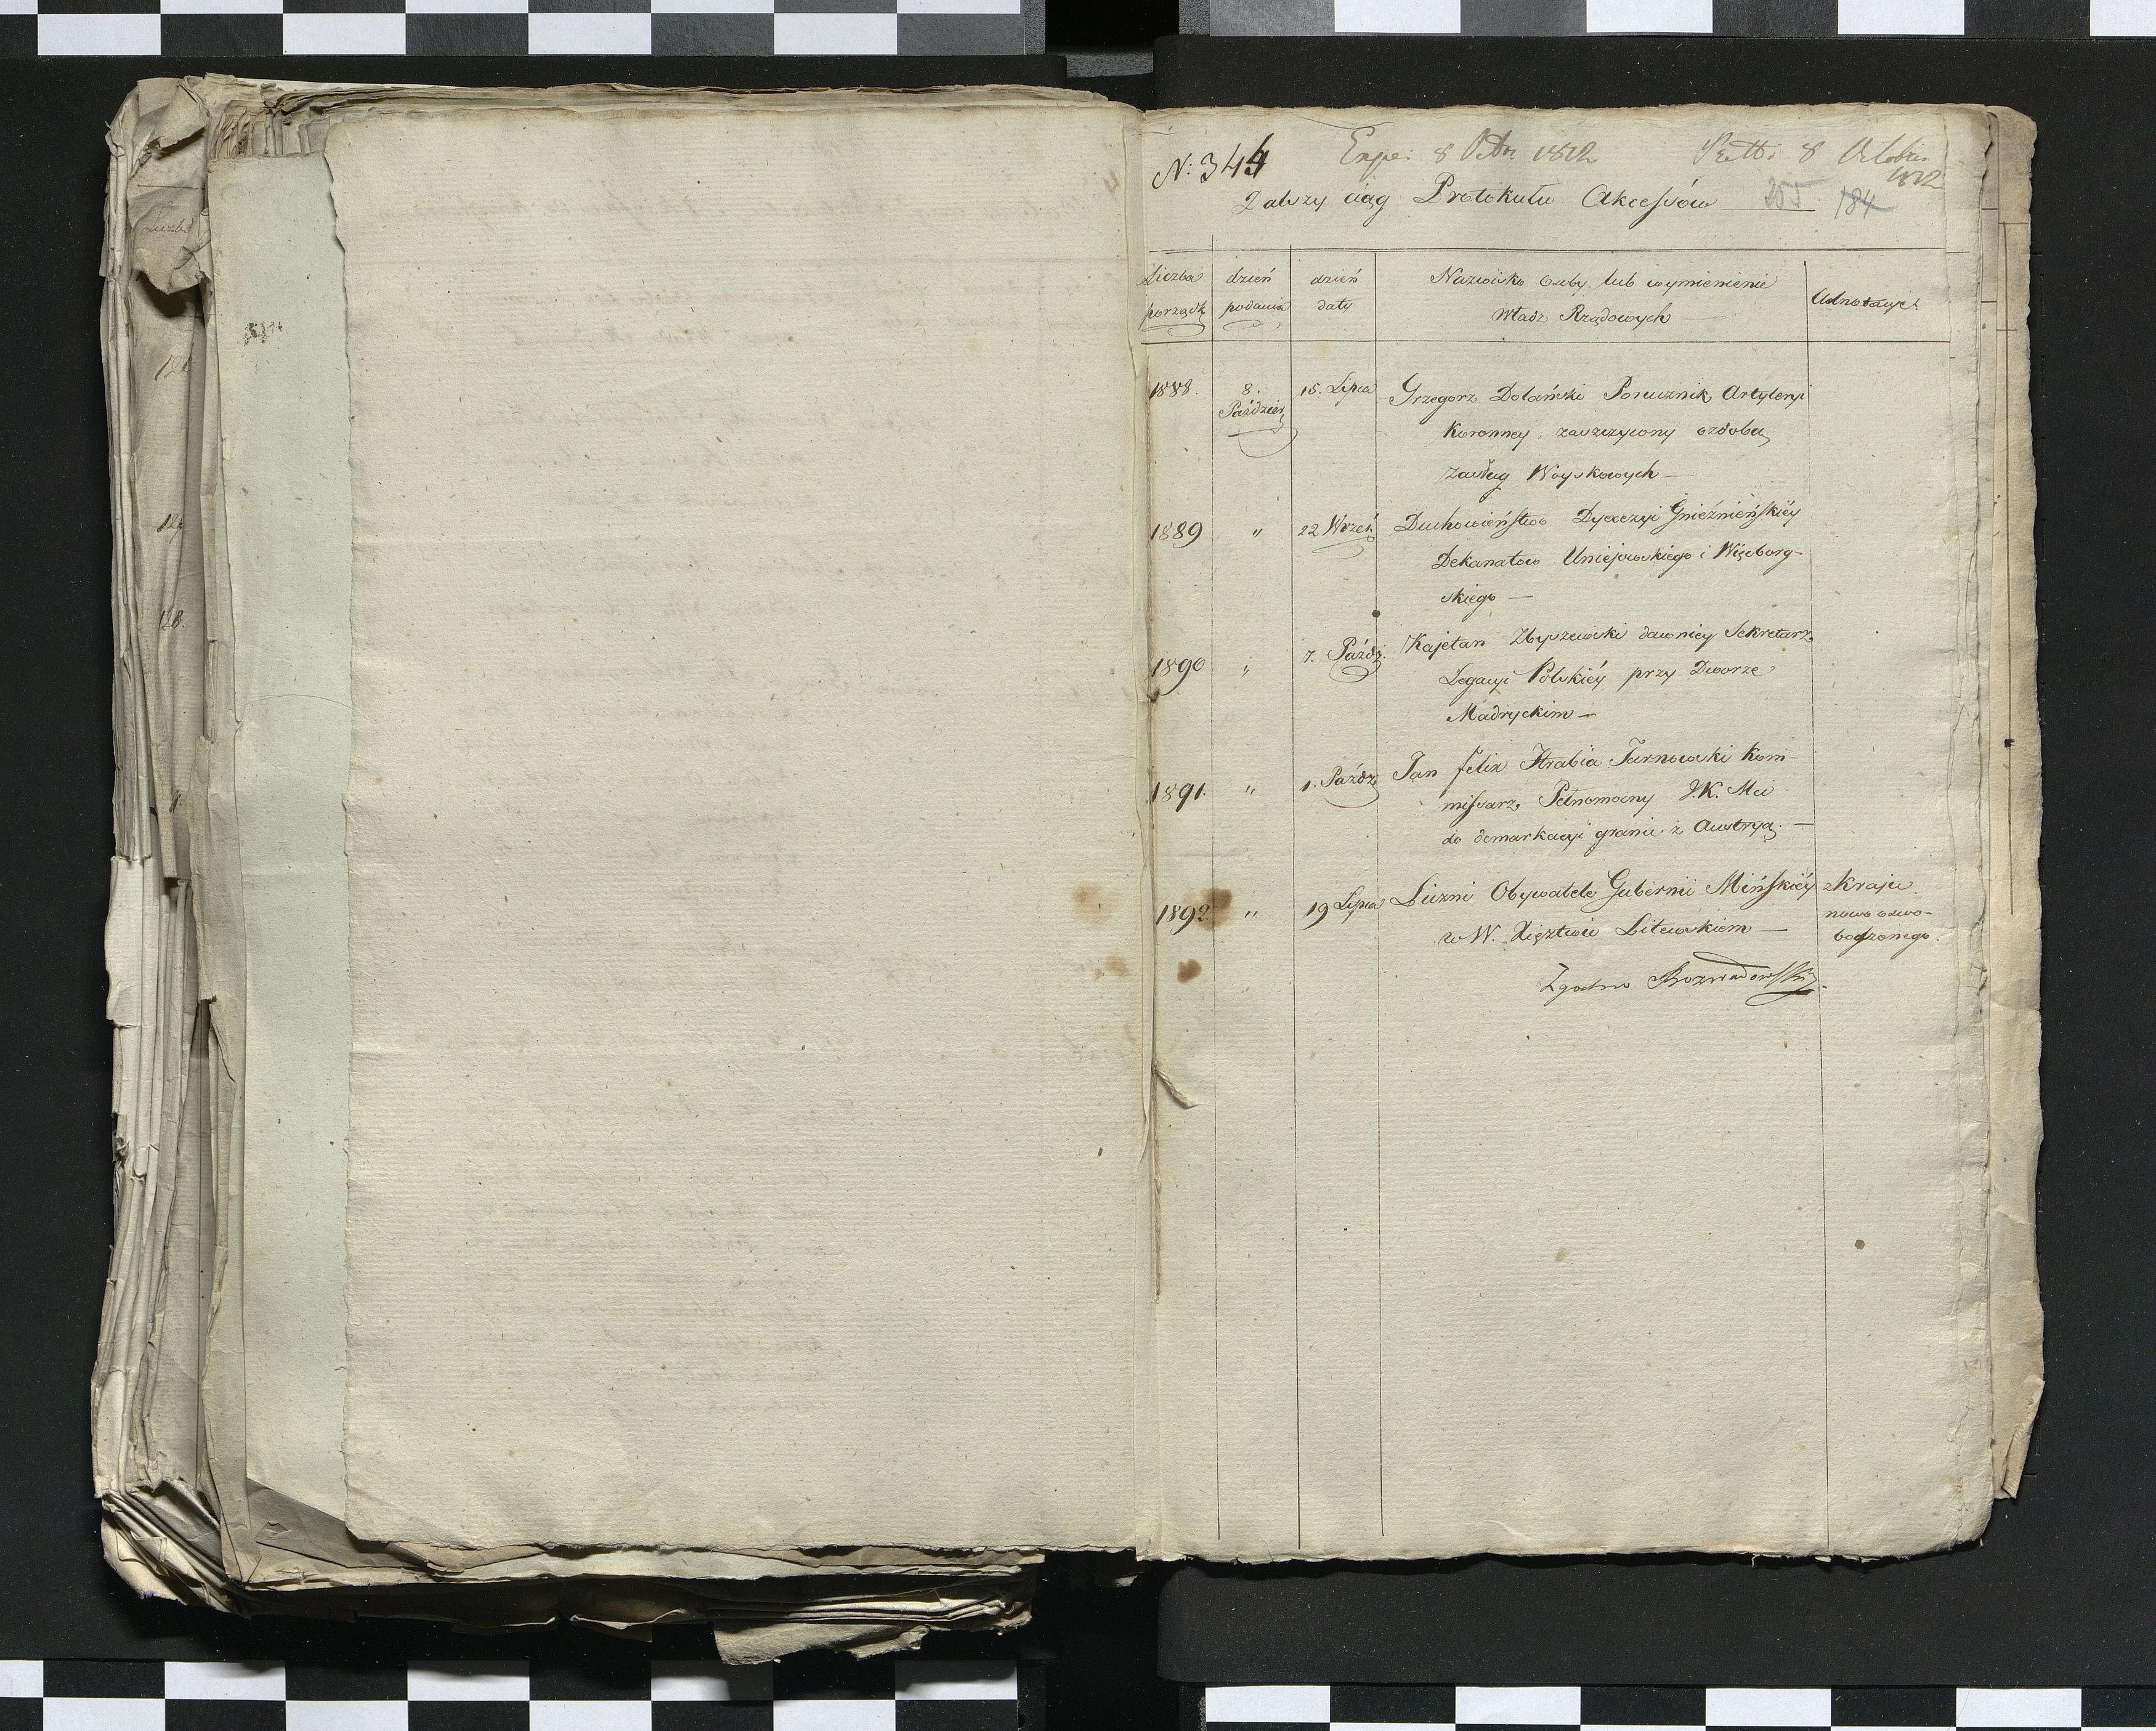 N: 344
Expe: 8 Octbr 1812
8 Octobr.
1812
Dalszy ciąg Protokułu Akcessów 205 184
Liczba porządk
dzień podania
dzień daty
Nazwisko osoby lub wymienienie
Władz Rządowych
Adnotacye
1888. 8. Paździer 15. Lipca Grzegorz Dolański Porucznik Artyleryi
Koronney, zaszczycony ozdobą
Zasług Woyskowych —
1889 " 22 Wrześ Duchowieństwo Dyecezyi Gnieźnieńskiéy
Dekanatów Uniejowskiego i Więcborg-
skiego —
1890 " 7. Paźdz. Kajetan Zbyszewski dawniey Sekretarz
Legacyi Polskiéy przy Dworze
Madryckim —
1891. " 1. Paźdz Jan Felix Hrabia Tarnowski Kom-
missarz Pełnomocny J.K. Mci
do demarkacyi granic z Austryą. —
1892 " 19 Lipca Liczni Obywatele Gubernii Mińskiéy z Kraju
w W. Xięztwie Litewskiem — nowo oswo-
bodzonego.
Zgodno Rozwadowski